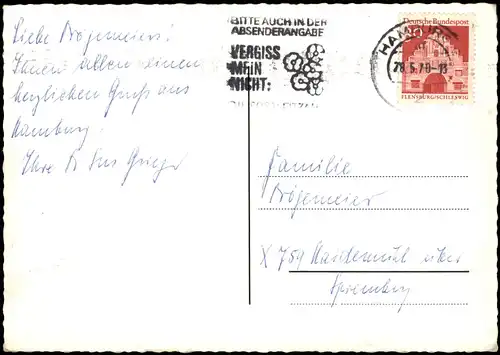 BITTE AUCH IN DER
ABSENDERANGABE
VERGISS
MEIN
NICHT:
HAMBURG
28.5.70-13
Deutsche Bundespost
FLENSBURG/SCHLESWIG
Liebe Drögemeiers!
Ihnen allen einen
herzlichen Gruß aus
Hamburg!
Ihre
Familie
Drögemeier
X 759 Haidemühl über
Spremberg